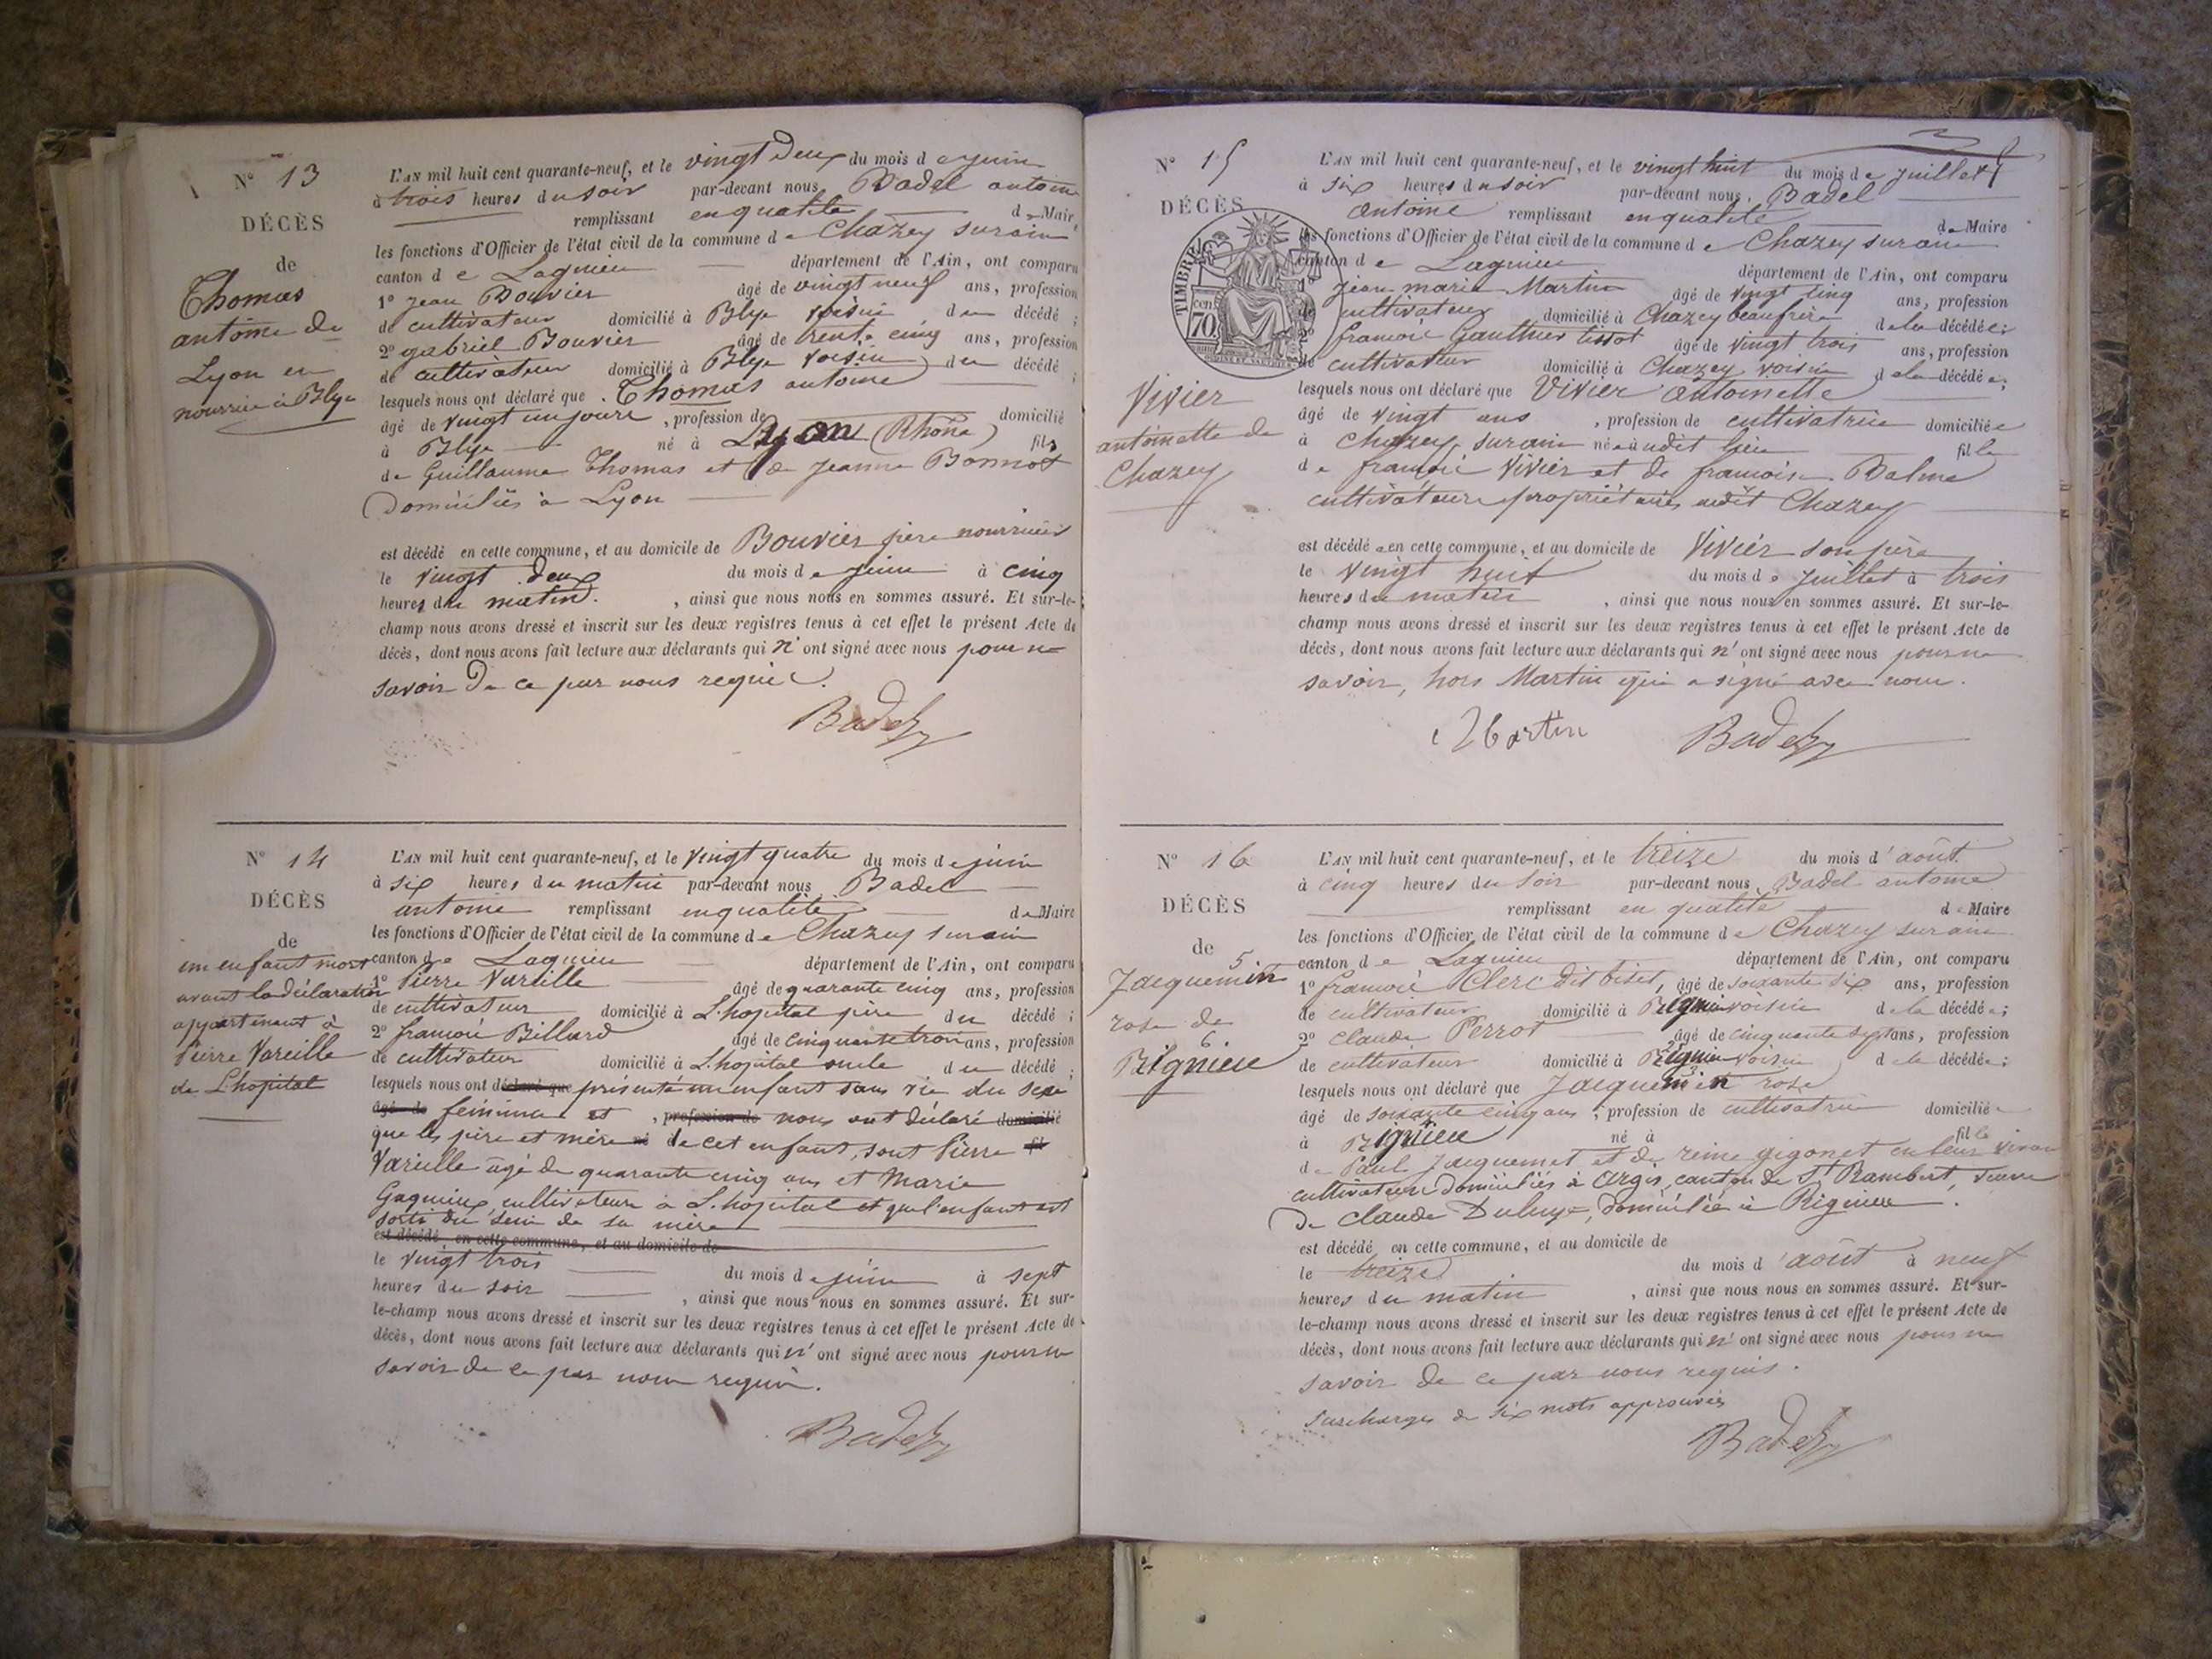 N° 13
DÉCÈS
de
Thomas
antoine de
Lyon en
nourrice à Blye
L'AN mil huit cent quarante-neuf, et le vingt deux du mois de juin
à trois heures du soir par-devant nous Badel antoine
remplissant en qualité de Maire
les fonctions d'Officier de l'état civil de la commune de Chazey sur ain
canton de Lagnieu département de l'Ain, ont comparu
1° Jean Bouvier âgé de vingt neuf ans, profession
de cultivateur domicilié à Blye voisin du décédé ;
2° gabriel Bouvier âgé de trente cinq ans, profession
de cultivateur domicilié à Blye voisin du décédé ;
lesquels nous ont déclaré que Thomas antoine
âgé de vingt un jours, profession de domicilié
à Blye né à Lyon (Rhône) fils
de Guillaume Thomas et de Jeanne Bonnot
Domiciliés à Lyon
est décédé en cette commune, et au domicile de Bouvier père nourricier
le vingt deux du mois de juin à cinq
heures du matin, ainsi que nous nous en sommes assuré. Et sur-le-
champ nous avons dressé et inscrit sur les deux registres tenus à cet effet le présent Acte de
décès, dont nous avons fait lecture aux déclarants qui n'ont signé avec nous pour ne
savoir De ce par nous requis.
Badel
N° 14
DÉCÈS
de
un enfant mort
avant la déclaration
appartenant à
Pierre Vareille
de L'hopital
L'AN mil huit cent quarante-neuf, et le vingt quatre du mois de juin
à six heures du matin par-devant nous Badel
antoine remplissant en qualité de Maire
les fonctions d'Officier de l'état civil de la commune de Chazey sur ain
canton de Lagnieu département de l'Ain, ont comparu
1° Pierre Vareille âgé de quarante cinq ans, profession
de cultivateur domicilié à L'hopital père du décédé ;
2° françois Billard âgé de cinquante trois ans, profession
de cultivateur domicilié à L'hopital oncle du décédé ;
lesquels nous ont déclaré que présenté un enfant sans vie du sexe
âgé de féminin et, profession de nous ont déclaré domicilié
que les père et mère né de cet enfant, sont Pierre fil
Vareille âgé de quarante cinq ans et Marie
Gagnieux, cultivateurs à L'hopital et que l'enfant est
sorti du sein de sa mère
est décédé en cette commune, et au domicile de
le vingt trois du mois de juin à sept
heures du soir, ainsi que nous nous en sommes assuré. Et sur-
le-champ nous avons dressé et inscrit sur les deux registres tenus à cet effet le présent Acte de
décès, dont nous avons fait lecture aux déclarants qui n'ont signé avec nous pour ne
savoir de ce par nous requis.
Badel
N° 15
DÉCÈS
TIMBRE
70 cent
Vivier
antoinette de
Chazey
L'AN mil huit cent quarante-neuf, et le vingt huit du mois de juillet
à six heures du soir par-devant nous Badel
antoine remplissant en qualité de Maire
les fonctions d'Officier de l'état civil de la commune de Chazey sur ain
canton de Lagnieu département de l'Ain, ont comparu
1° Jean marie Martin âgé de vingt cinq ans, profession
de cultivateur domicilié à Chazey beaufrère de la décédée ;
2° françois Gauthier tissot âgé de vingt trois ans, profession
de cultivateur domicilié à Chazey voisin de la décédée ;
lesquels nous ont déclaré que Vivier antoinette
âgé de vingt ans, profession de cultivatrice domiciliée
à Chazey sur ain née audit lieu fille
de françois Vivier et de françoise Balme
cultivateurs propriétaires audit Chazey
est décédée en cette commune, et au domicile de Vivier son père
le vingt huit du mois de juillet à trois
heures du matin, ainsi que nous nous en sommes assuré. Et sur-le-
champ nous avons dressé et inscrit sur les deux registres tenus à cet effet le présent Acte de
décès, dont nous avons fait lecture aux déclarants qui n'ont signé avec nous pour ne
savoir, hors Martin qui a signé avec nous.
Martin Badel
N° 16
DÉCÈS
de
Jacquemin
rose de
Rignieu
L'AN mil huit cent quarante-neuf, et le treize du mois d'août
à cinq heures du soir par-devant nous Badel antoine
remplissant en qualité de Maire
les fonctions d'Officier de l'état civil de la commune de Chazey sur ain
canton de Lagnieu département de l'Ain, ont comparu
1° françois Clerc dit biset, âgé de soixante six ans, profession
de cultivateur domicilié à Rignieu voisin de la décédée ;
2° claude Perrot âgé de cinquante sept ans, profession
de cultivateur domicilié à Rignieu voisin de la décédée ;
lesquels nous ont déclaré que Jacquemin rose
âgé de soixante cinq ans, profession de cultivatrice domiciliée
à Rignieu né à fille
de Paul Jacquemet et de reine gigonet en leur vivan
cultivateurs domiciliés à Argis, canton de St Rambert, veuve
De claude Duluye, domiciliée à Rignieu.
est décédé en cette commune, et au domicile de
le treize du mois d'août à neuf
heures du matin, ainsi que nous nous en sommes assuré. Et sur-
le-champ nous avons dressé et inscrit sur les deux registres tenus à cet effet le présent Acte de
décès, dont nous avons fait lecture aux déclarants qui n'ont signé avec nous pour ne
savoir de ce par nous requis.
surcharges de six mots approuvés
Badel